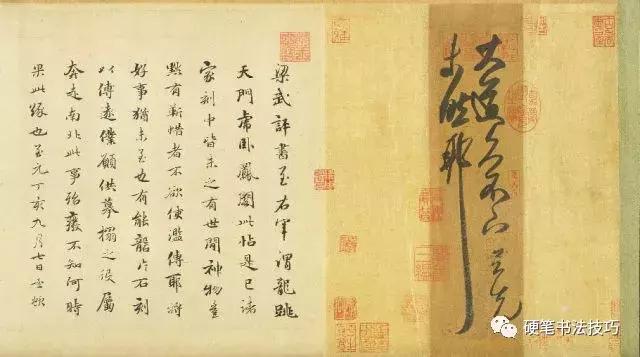 大道久不下与先
未然耶
梁武評書至右軍謂龍跳
天門虎卧鳳閣此帖是已諸
家刻中皆未之有世間神物豈
默有靳惜者不欲使濫傳耶將
好事猶未至也有能龕片石刻
以傳遠僕願供摹搨之役屬
奔走南北此事殆廢不知何時
果此緣也至元丁亥九月七日孟頫
硬笔书法技巧